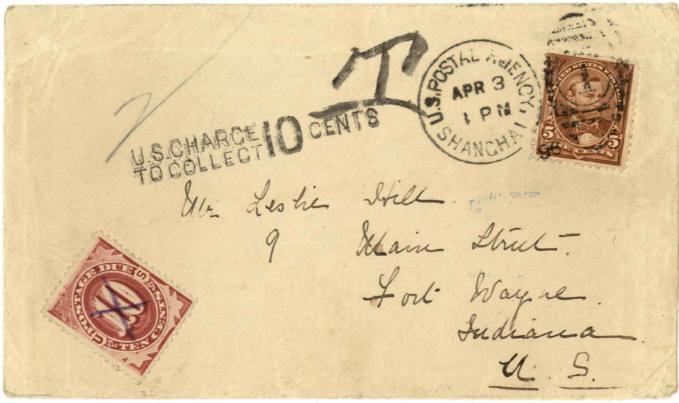 T
U.S. POSTAL AGENCY,
SHANGHAI
APR 3
1 PM
98
U.S. CHARGE
TO COLLECT 10 CENTS
5 5
Mr Leslie Hill
9 Main Street.
Fort Wayne.
Indiana
U. S.
POSTAGE DUE
10
TEN CENTS